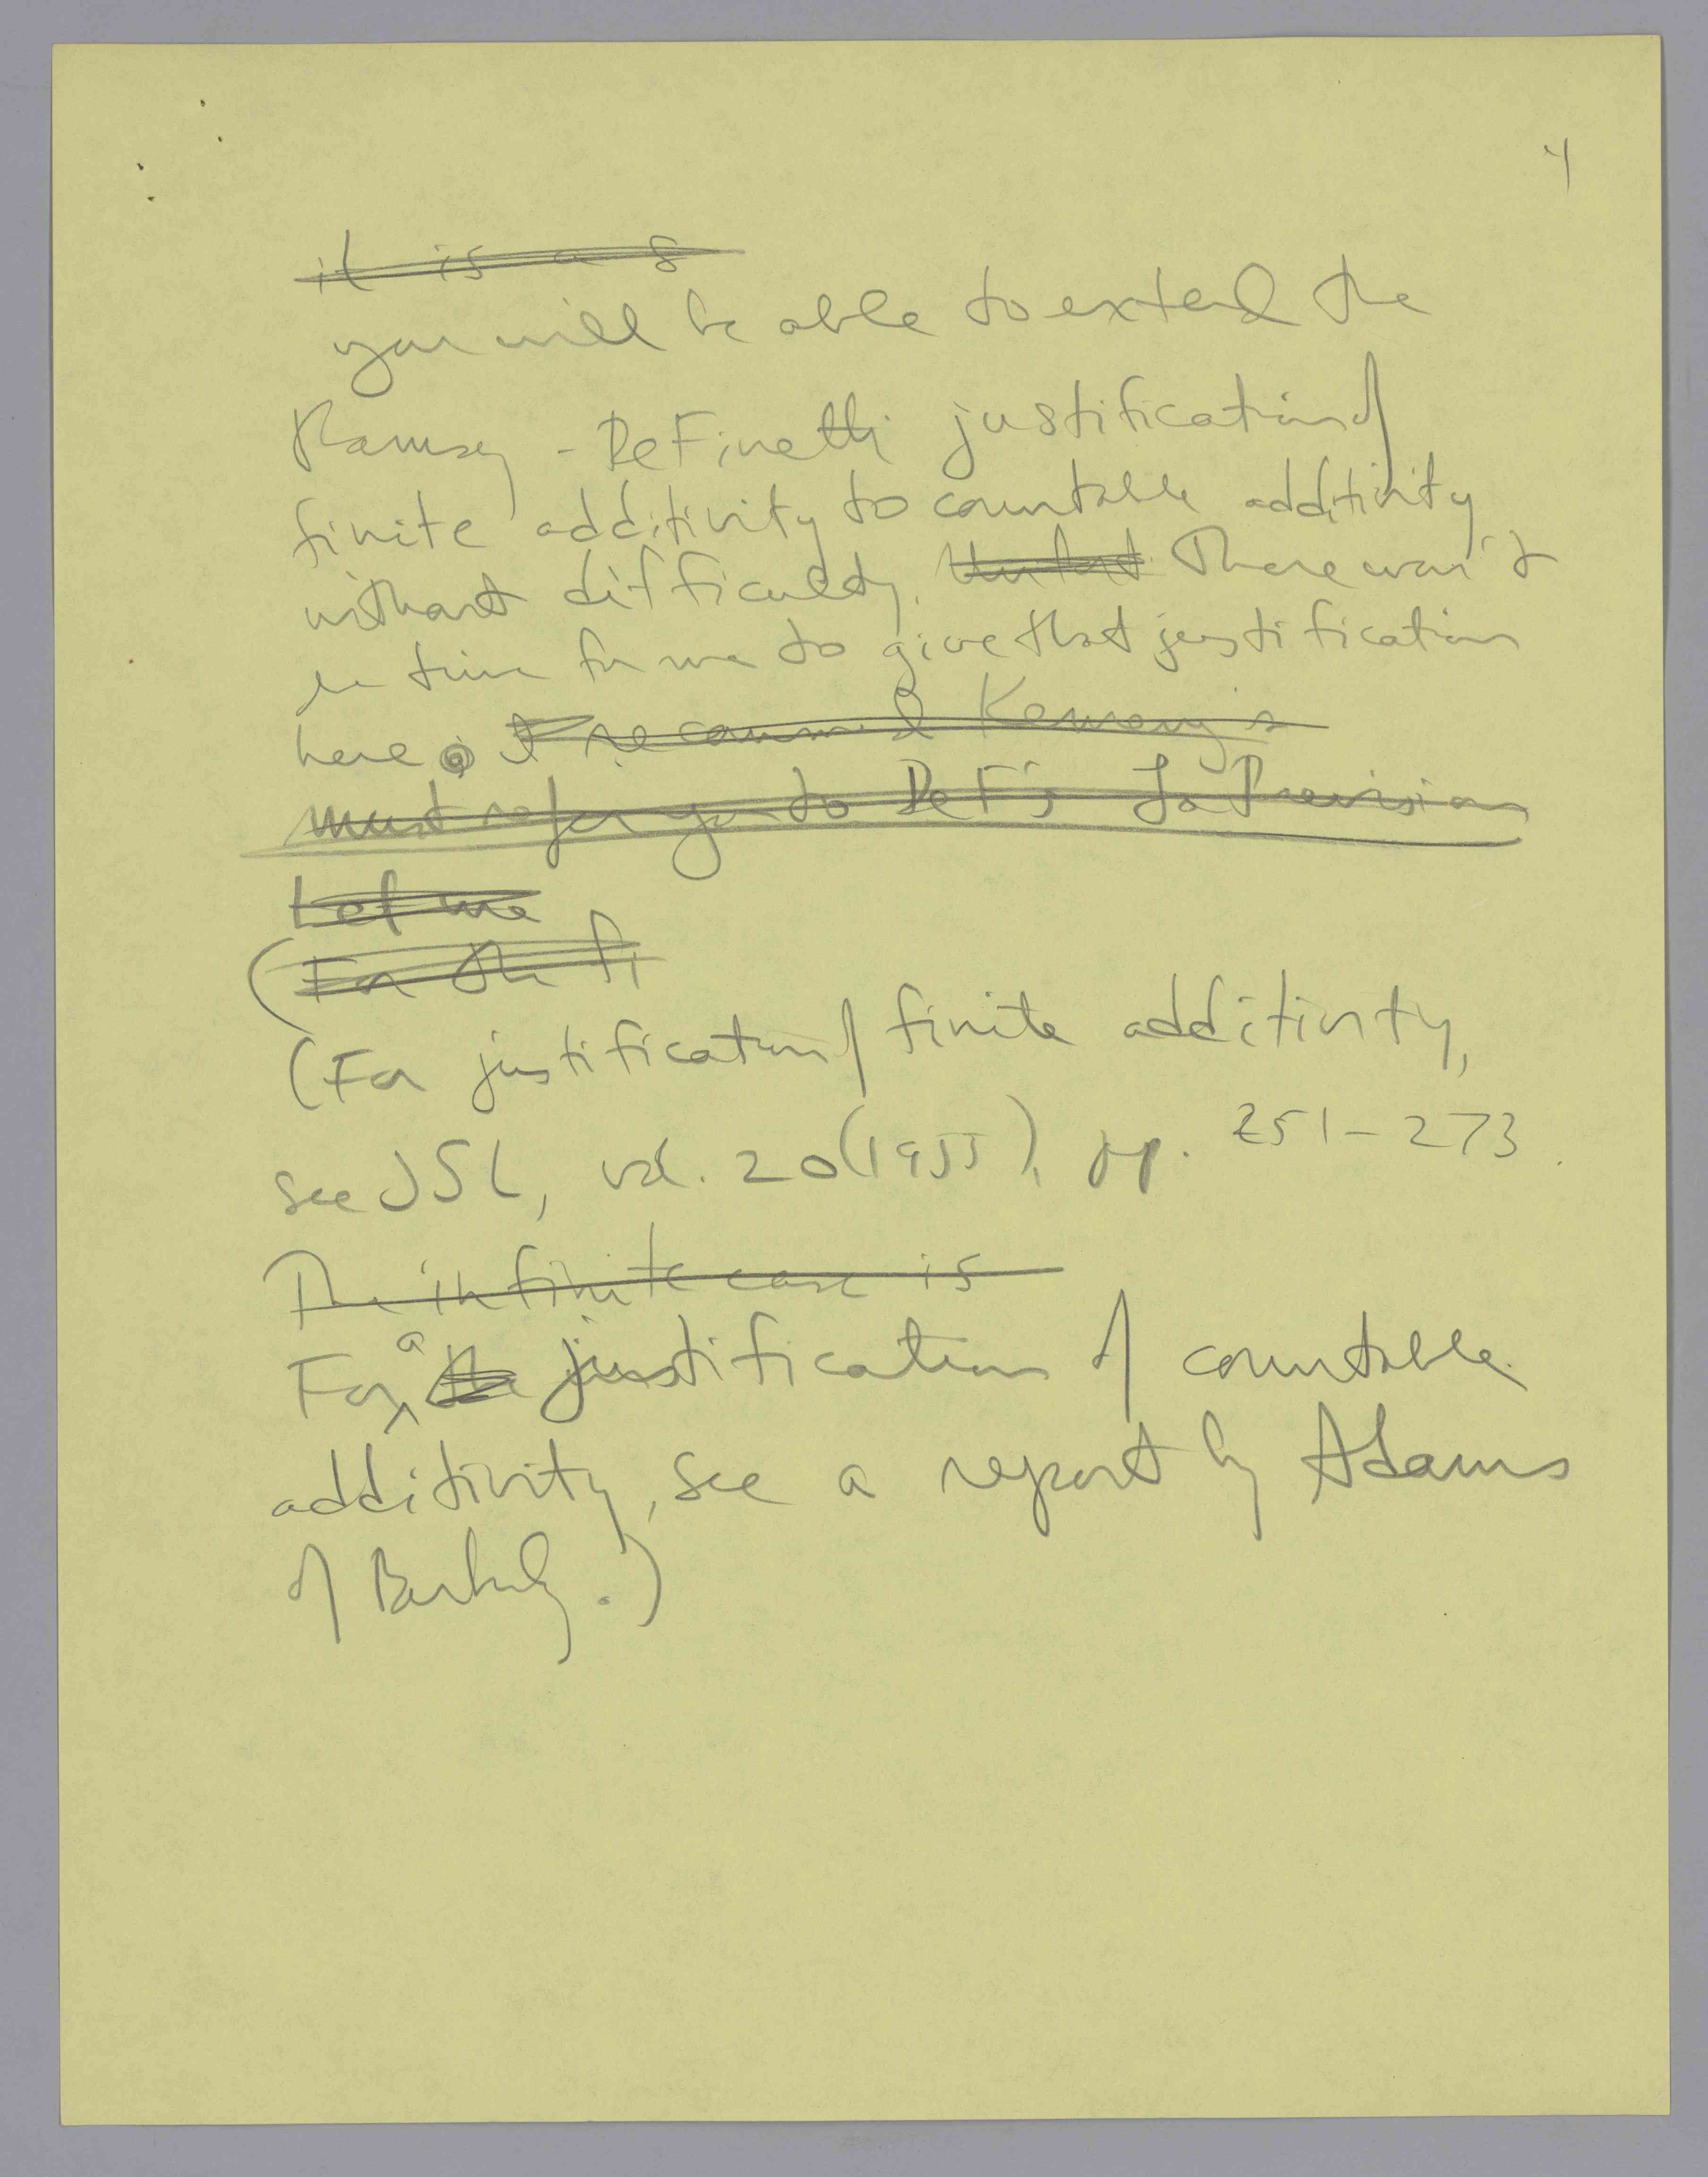 4
it is a s
you will be able to extend the
Ramsey - DeFinetti justification of
finite additivity to countable additivity
without difficulty. There won't
be time for me to give that justification
here. I recommend Kemeny's
must refer you to DeF's La Prevision
Let me
(For the fi
(For justification of finite additivity,
see JSL, vol. 20 (1955), pp. 251-273.
The infinite case is
For a the justification of countable
additivity, see a report by Adams
of Berkeley.)